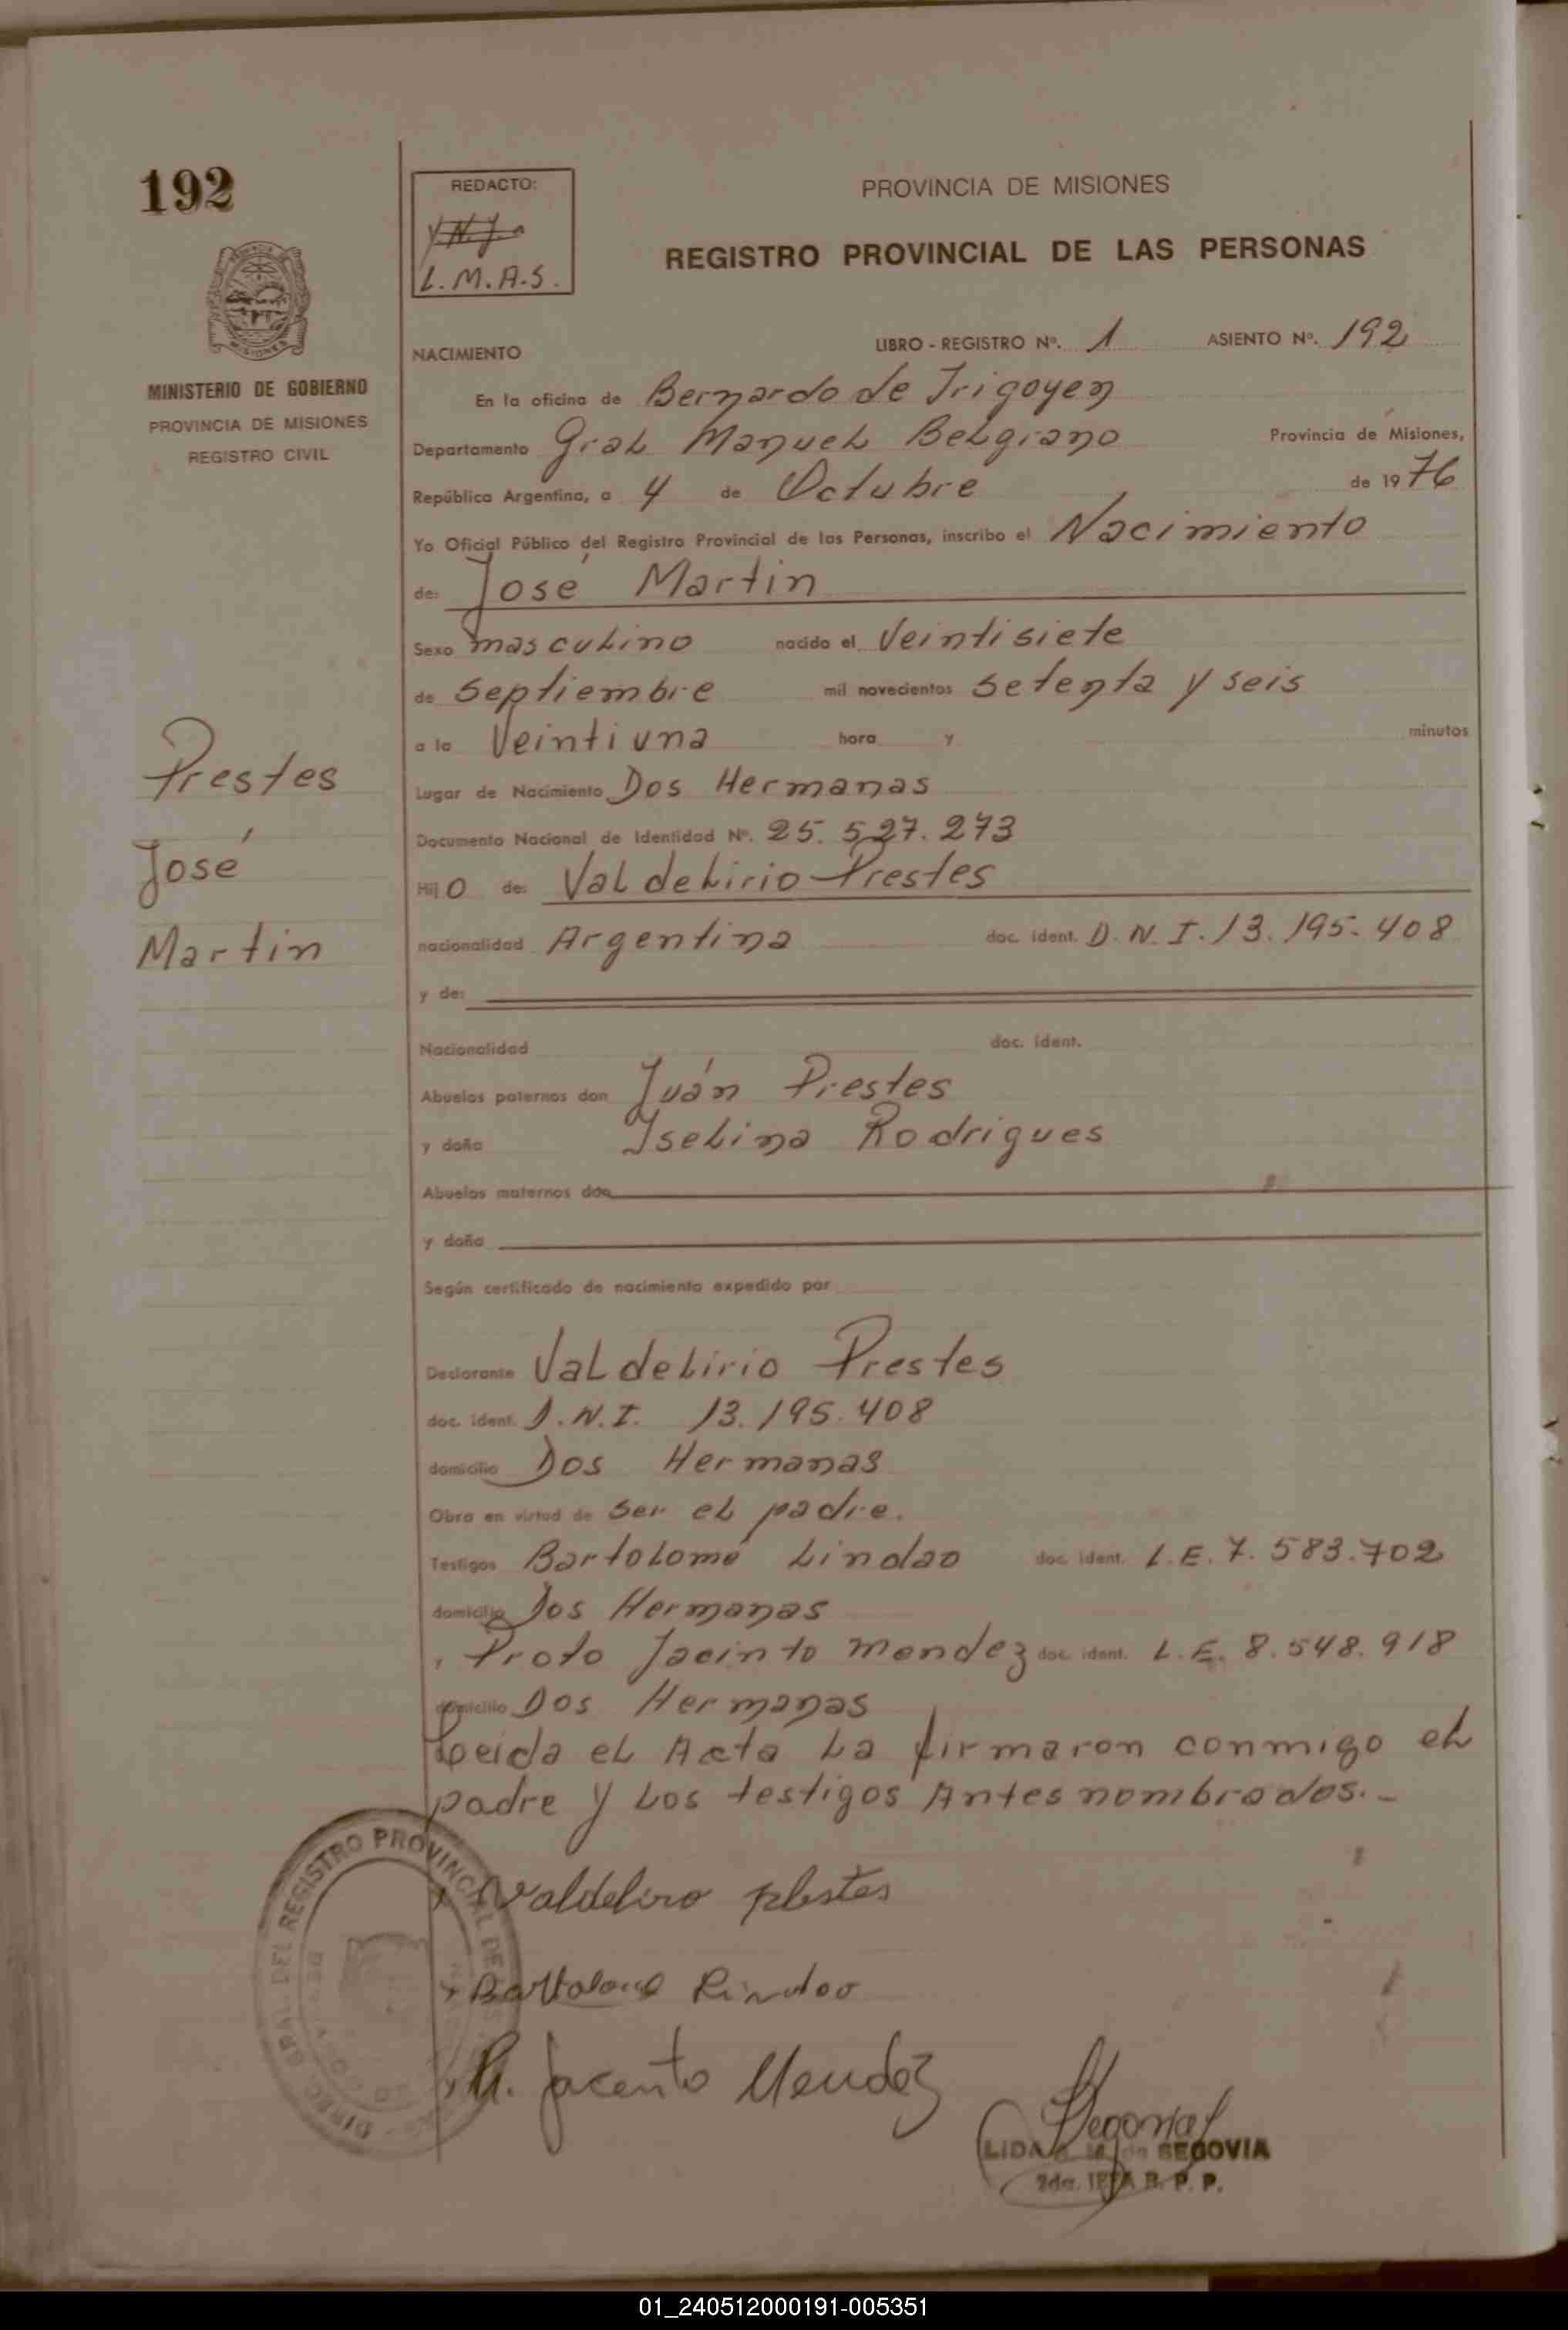 192
MISIONES
MINISTERIO DE GOBIERNO
PROVINCIA DE MISIONES
REGISTRO CIVIL
Prestes
José
Martin
REDACTO:
L.M.A.S.
PROVINCIA DE MISIONES
REGISTRO PROVINCIAL DE LAS PERSONAS
NACIMIENTO LIBRO - REGISTRO Nº. 1 ASIENTO Nº. 192
En la oficina de Bernardo de Irigoyen
Departamento Gral Manuel Belgrano Provincia de Misiones,
República Argentina, a 4 de Octubre de 1976
Yo Oficial Público del Registro Provincial de las Personas, inscribo el Nacimiento
de: José Martin
Sexo masculino nacido el Veintisiete
de Septiembre mil novecientos setenta y seis
a la Veintiuna hora y minutos
Lugar de Nacimiento Dos Hermanas
Documento Nacional de Identidad Nº. 25.527.273
Hijo de: Valdelirio Prestes
nacionalidad Argentina doc. ident. D.N.I. 13.195.408
y de:
Nacionalidad doc. ident.
Abuelos paternos don Juán Prestes
y doña Iselina Rodrigues
Abuelos maternos don
y doña
Según certificado de nacimiento expedido por
Declarante Valdelirio Prestes
doc. ident. D.N.I. 13.195.408
domicilio Dos Hermanas
Obra en virtud de ser el padre.
Testigos Bartolomé Lindao doc. ident. L.E. 7.583.702
domicilio Dos Hermanas
y Proto Jacinto Mendez doc. ident. L.E. 8.548.918
domicilio Dos Hermanas
Leida el Acta la firmaron conmigo el
padre y los testigos Antes nombrados.-
Valdeliro Prestes
Bartolome Lindao
P. Jacinto Mendez
DIREC. GRAL. DEL REGISTRO PROVINCIAL DE LAS
Segovia
LIDA M. de SEGOVIA
2da. JEFA R. P. P.
01_240512000191-005351